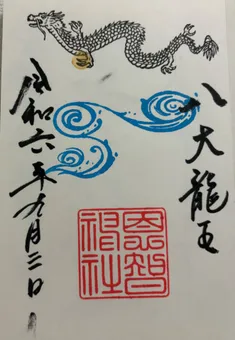 八大龍王
恩智神社
令和六年九月二日